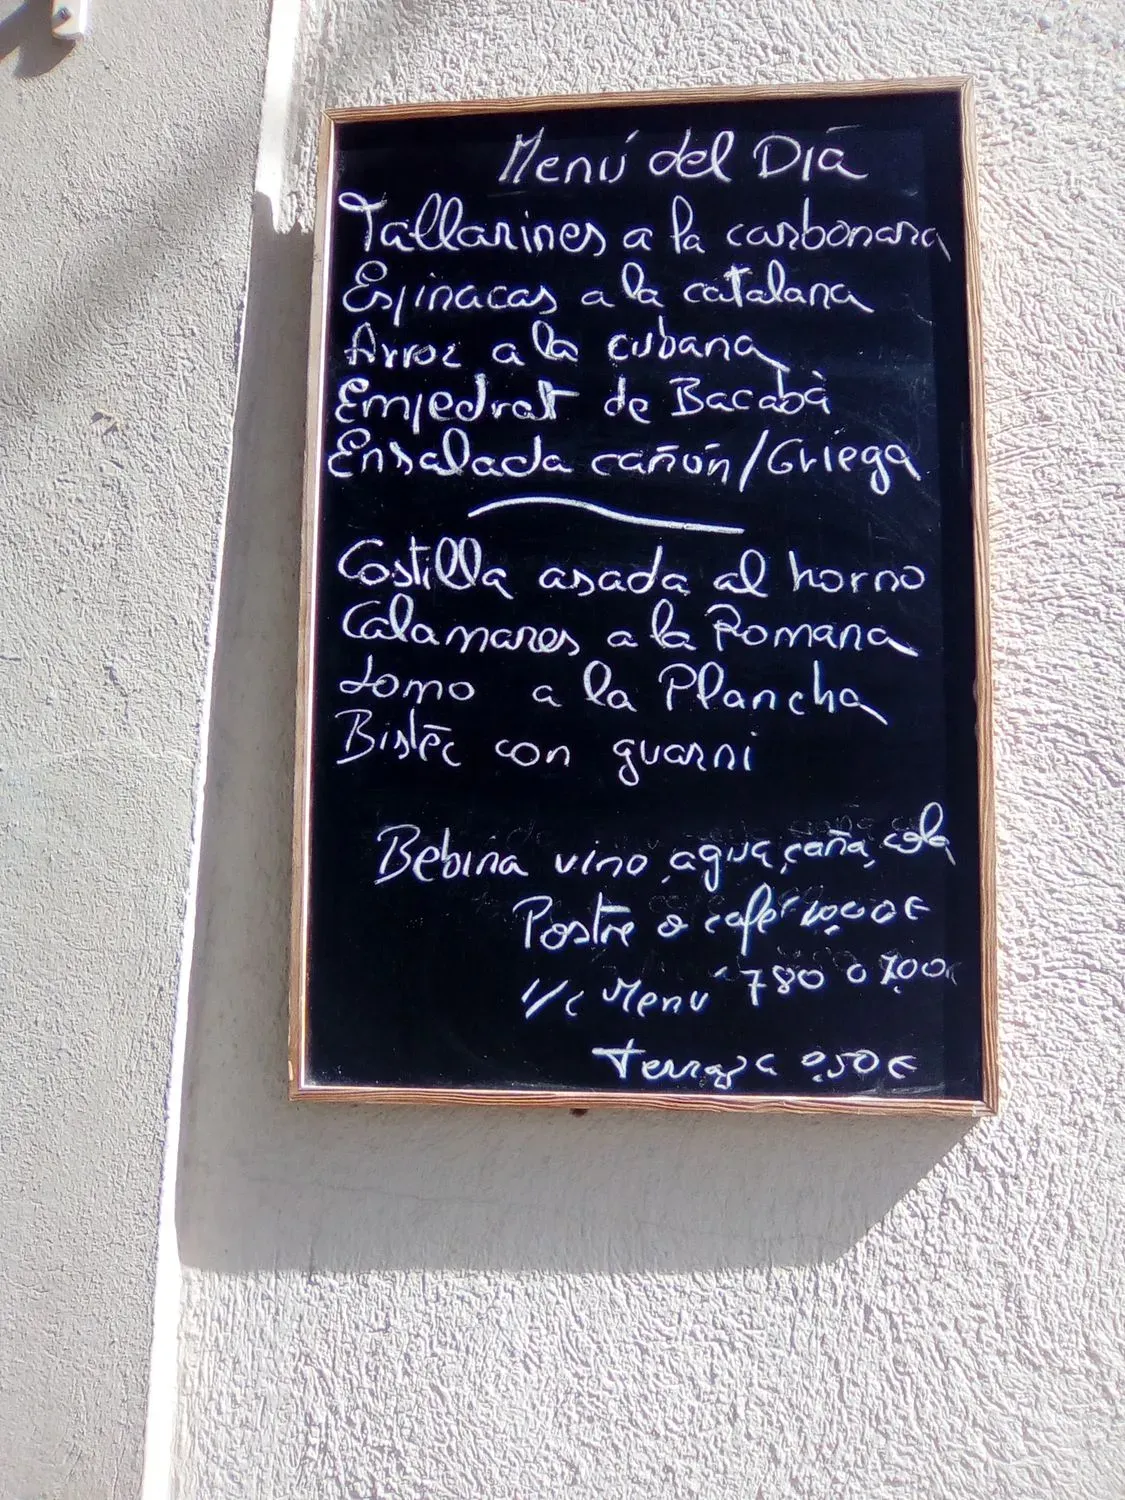 Menú del Dia
Tallarines a la carbonara
Espinacas a la catalana
Arroz a la cubana
Empedrat de Bacabà
Ensalada cañún/Griega
Costilla asada al horno
Calamares a la Romana
Lomo a la Plancha
Bistec con guarni
Bebina vino, agua, caña, cola
Postre o café
1/2 Menú 780 o
Terraza 0,50€